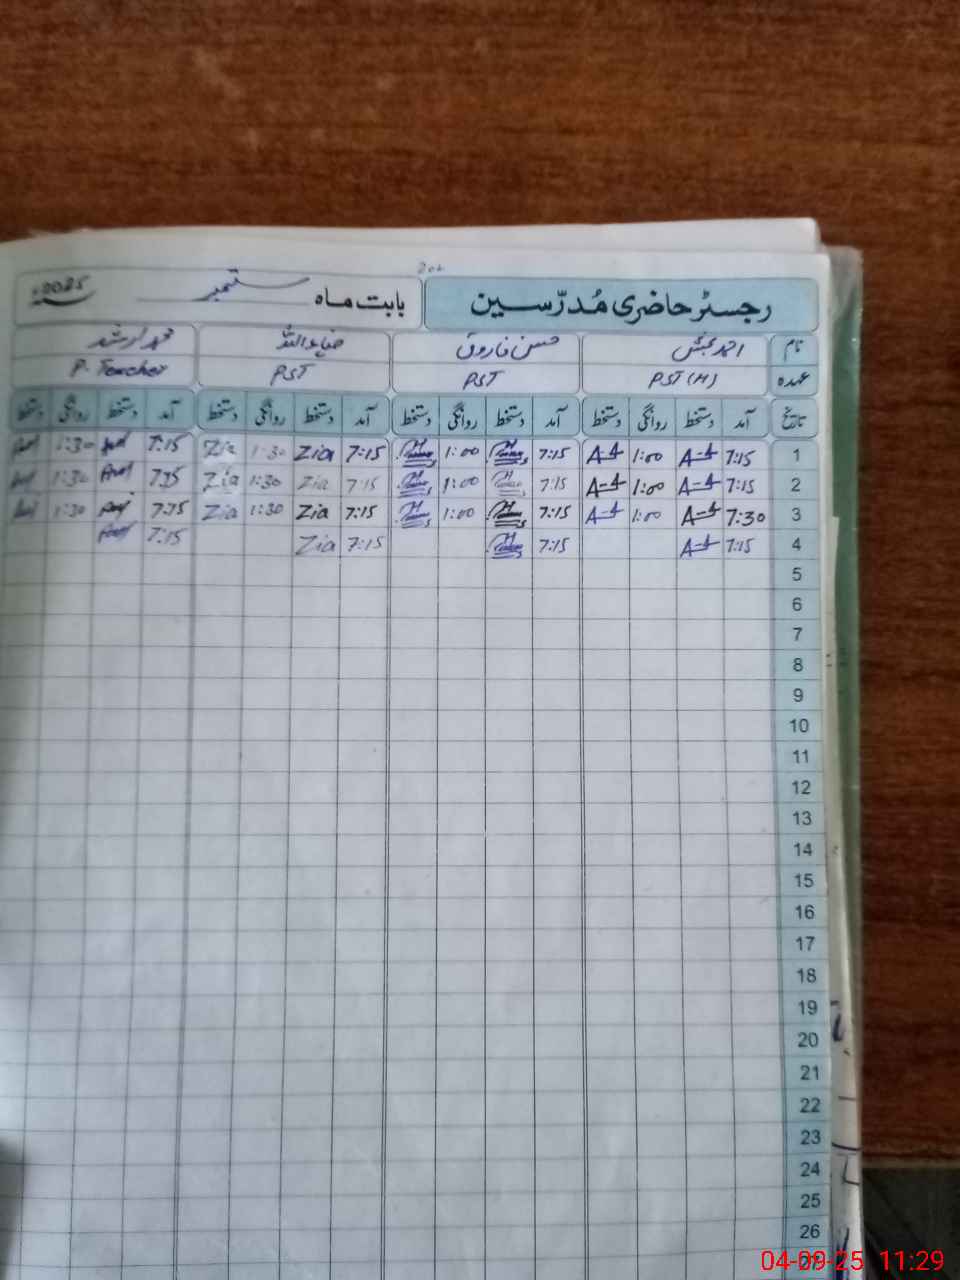 رجسٹر حاضری مُدرّسین بابت ماہ ستمبر
نام احمد بخش حسن فاروق ضیاء اللہ محمد ارشد
عہدہ PST (H) PST PST P. Teacher
تاریخ آمد دستخط روانگی دستخط آمد دستخط روانگی دستخط آمد دستخط روانگی دستخط آمد دستخط روانگی دستخط
1 7:15 A-A 1:00 A-A 7:15 1:00 7:15 Zia 1:30 Zia 7:15 1:30
2 7:15 A-A 1:00 A-A 7:15 1:00 7:15 Zia 1:30 Zia 7:15 1:30
3 7:30 A-A 1:00 A-A 7:15 1:00 7:15 Zia 1:30 Zia 7:15 1:30
4 7:15 A-A 7:15 7:15 Zia 7:15
5
6
7
8
9
10
11
12
13
14
15
16
17
18
19
20
21
22
23
24
25
26
27
04-09-25 11:29